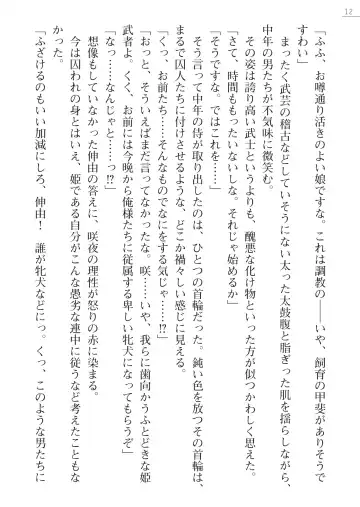 12
「ふふ、お噂通り活きのよい娘ですな。これは調教の――いや、飼育の甲斐がありそうで
すわい」
まったく武芸の稽古などしていそうにない太った太鼓腹と脂ぎった肌を揺らしながら、
中年の男たちが不気味に微笑む。
その姿は誇り高い武士というよりも、醜悪な化け物といった方が似つかわしく思えた。
「さて、時間ももったいないしな。それじゃ始めるか」
「そうですな。ではこれを……」
そう言って中年の侍が取り出したのは、ひとつの首輪だった。鈍い色を放つその首輪は、
まるで囚人たちに付けさせるような、どこか禍々しい感じに見える。
「くっ、お前たち……いったいそのようなものでなにをする気じゃ……!?」
「おっと、そういえばまだ言ってなかったな。咲……いや、我らに歯向かうふとどきな姫
武者よ。くく、お前には今晩から俺様たちに従属する卑しい牝犬になってもらうぞ」
「なっ……なんじゃと……っ!?」
想像もしていなかった伸由の答えに、咲夜の理性が怒りの赤に染まる。
今は囚われの身とはいえ、姫である自分がこんな愚劣な連中に従うなどとても考えられな
かった。
「ふざけるのもいい加減にしろ、伸由!　誰が牝犬などにっ。くっ、このような男たちに